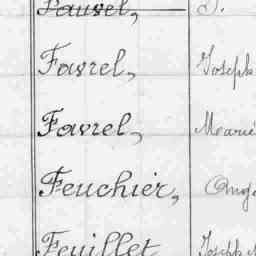 Favrel, Joseph
Favrel, Marie
Feuchier,
Feuillet Joseph